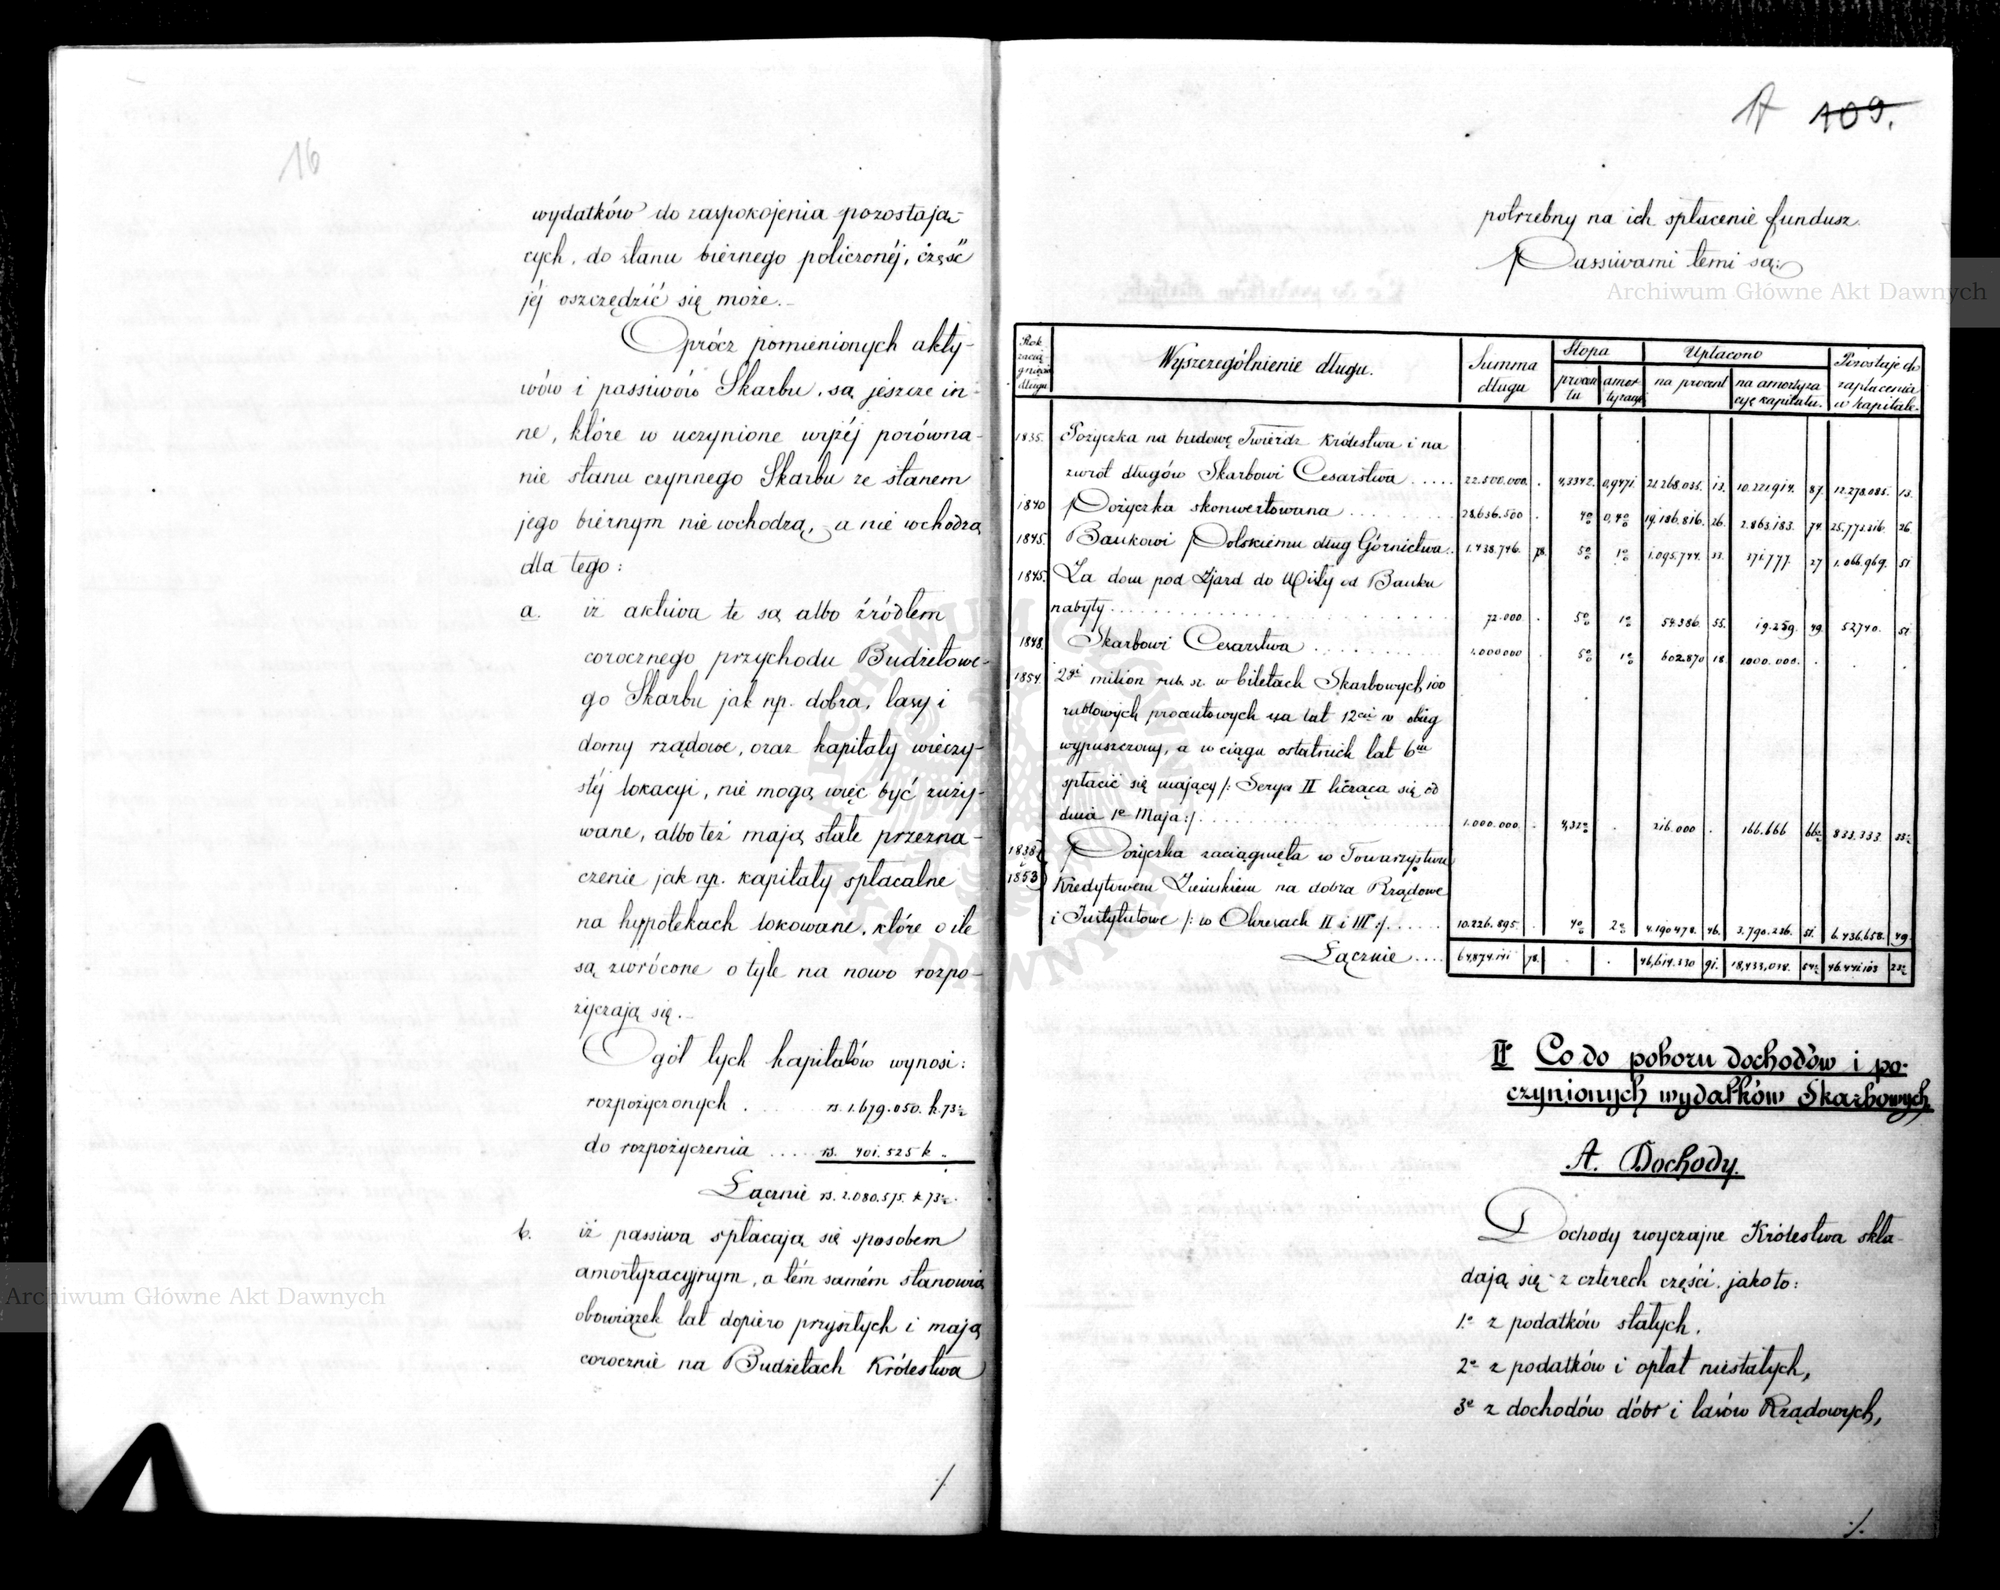 16
wydatków do zaspokojenia pozostają-
cych, do stanu biernego policzonéj, część
jéj oszczędzić się może.-
Oprócz pomienionych akty-
wów i passiwów Skarbu, są jeszcze in-
ne, które w uczynione wyżéj porówna-
nie stanu czynnego Skarbu ze stanem
jego biernym nie wchodzą, a nie wchodzą
dla tego:
a. iż aktiva te są albo źródłem
corocznego przychodu Budżetowe-
go Skarbu jak np. dobra, lasy i
domy rządowe, oraz kapitały wieczy-
stéj lokacyi, nie mogą więc być zuży-
wane, albo też mają stałe przezna-
czenie jak np. kapitały spłacalne
na hypotekach lokowane, które o ile
są zwrócone o tyle na nowo rozpo-
życzają się.-
Ogół tych kapitałów wynosi:
rozpożyczonych . . . . . rs. 1.679.050. k. 73½
do rozpożyczenia . . . . rs. 401.525 k „
Łącznie rs. 2.080.575. k 73½.
b. iż passiwa spłacają się sposobem
amortyzacyjnym, a tém samém stanowią
obowiązek lat dopiero przyszłych i mają
corocznie na Budżetach Królestwa
./.
17 109.
potrzebny na ich spłacenie fundusz.
Passiwami temi są:
Rok zacią gnięcia długu Wyszczególnienie długu. Summa długu Stopa procen tu amor tyzacyi Upłacono na procent na amortyza cyę kapitału. Pozostaje do zapłacenia w kapitale.
1835. Pożyczka na budowę Twierdz Królestwa i na
zwrot długów Skarbowi Cesarstwa . . . . . 22.500.000. . 4,3342. 0,9471. 21.268.035. 13. 10.221.914. 87. 12.278.085. 13.
1840 Pożyczka skonwertowana . . . . . . 28.636.500 . 4% 0,4% 19.186.816. 26. 2.863.183. 74. 25.773.316. 26
1845. Bankowi Polskiemu dług Górnictwa . . 1.438.746. 78. 5% 1% 1.095.744. 33. 371.777. 27 1.066.969. 51
1845. Za dom pod Zjazd do Wisły od Banku
nabyty . . . . . . . . 72.000. . 5% 1% 54.386. 55. 19.259. 49. 52740. 51
1848. Skarbowi Cesarstwa . . . . . . 1.000000 . 5% 1% 602.870 18. 1000.000. . . .
1854. 2gi milion rub. sr. w biletach Skarbowych 100
rublowych procentowych na lat 12cie w obieg
wypuszczony, a w ciągu ostatnich lat 6iu
spłacić się mający /: Serya II licząca się od
dnia 1º Maja :/. . . . . . . 1.000.000. . 4,32% . 216.000 . 166.666 66⅔ 833.333 33⅓
1838 i 1853 Pożyczka zaciągnięta w Towarzystwie
Kredytowem Ziemskiem na dobra Rządowe
i Instytutowe /: w Okresach II i III :/. . . . . 10.226.895. . 4% 2% 4.190478. 46. 3.790.236. 51. 6.436.658. 49.
Łącznie . . . . 64,874.141 78. . . 46,614.330 91. 18,433,038. 54⅔ 46.441.103 23⅓
II Co do poboru dochodów i po-
czynionych wydatków Skarbowych.
A. Dochody.
Dochody zwyczajne Królestwa skła-
dają się z czterech części, jako to:
1º z podatków stałych,
2º z podatków i opłat niestałych,
3º z dochodów dóbr i lasów Rządowych,
./.
Archiwum Główne Akt Dawnych
Archiwum Główne Akt Dawnych
ARCHIWUM GŁÓWNE AKT DAWNYCH